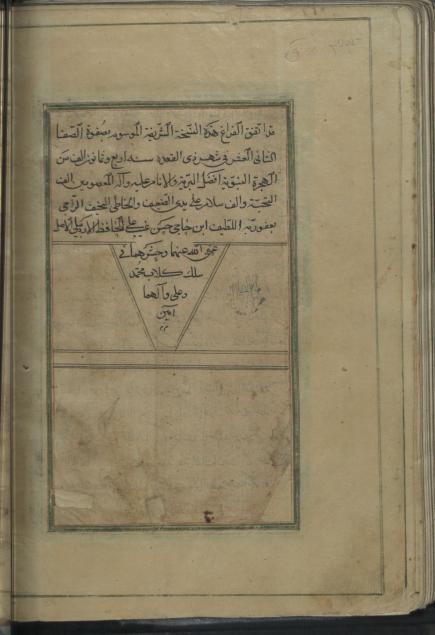 قد اتفق الفراغ هذه النسخة الشريفة الموسوم بصفوة الصفا
الثانى العشر فى شهر ذى القعده سنه اربع وثمانين الف من
الهجرة النبوية افضل البرية والانام عليه وآله المعصومين الف
التحية والف سلام على يدى الضعيف والخاطى النحيف الراجى
بعفو ربه اللطيف ابن حاجى حسن على الحافظ الاردبيلى
عفى الله عنهما وحشرهما فى
سلك كلاب محمد
وعلى وآلهما
امين